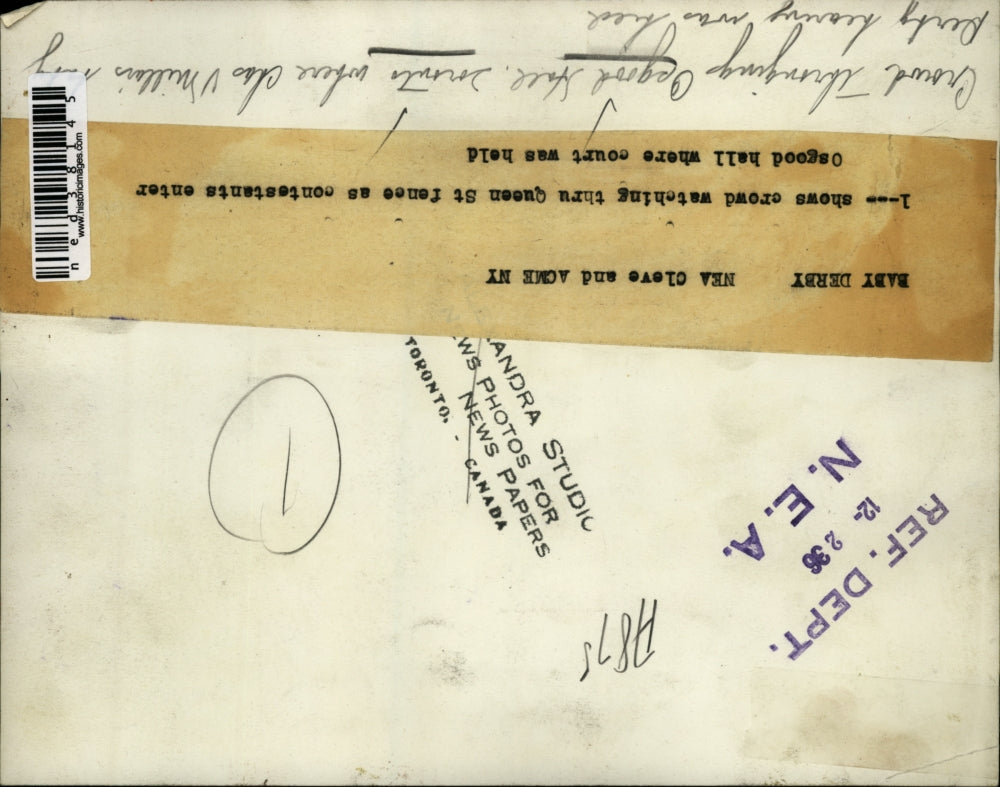 BABY DERBY NEA Cleve and ACME NY
1--- shows crowd watching thru Queen St fence as contestants enter
Osgood hall where court was held
Crowd thronging Osgood Hall. Toronto where Chas Millars
Derby hearing was held
ANDRA STUDIO
WS PHOTOS FOR
NEWS PAPERS
TORONTO. - CANADA
REF. DEPT.
12- 2 36
N. E. A.
H875
1
ned38145
www.historicimages.com